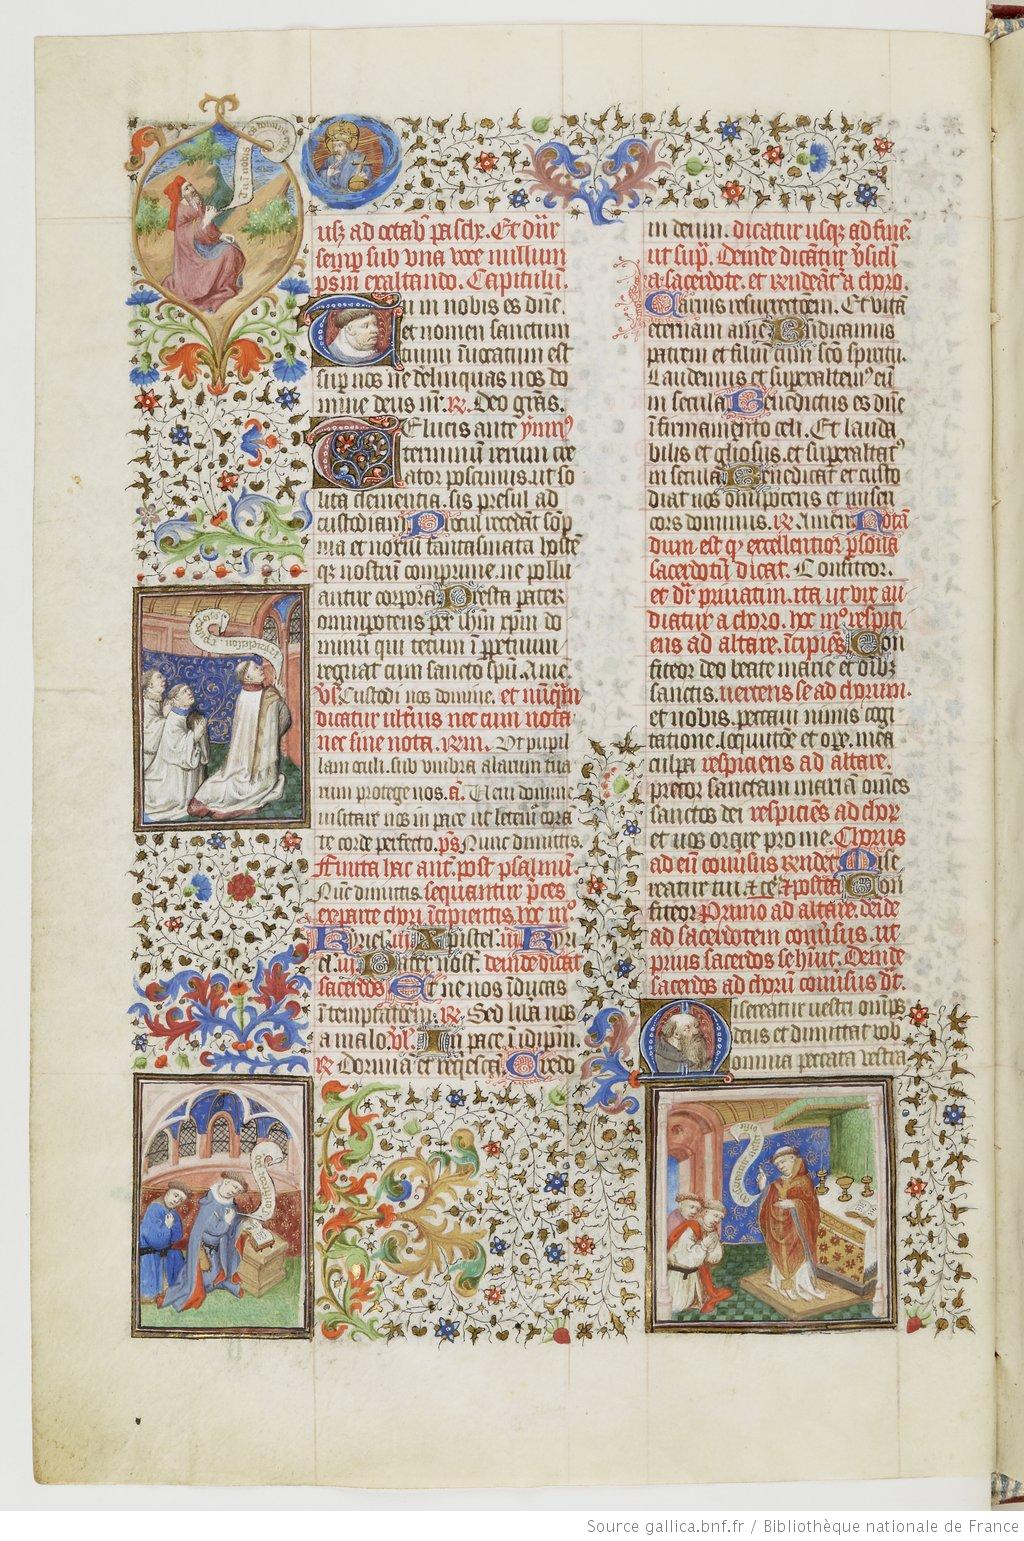 usq3 ad octab' pasche. Et dr̄
semp̄ sub una voce nullum
psm̄ exaltando. Capitulū
Tu in nobis es dn̄e.
et nomen sanctum
tuum īuocatum est
sup̄ nos ne delinquas nos do
mine deus nr̄. R̄. Deo grās.
Te lucis ante ymn9
terminum rerum cre
ator poscimus. ut so
lita clementia. sis presul ad
custodiam. Procul recedāt sōp
nia et noxiū fantasmata hostē
q3 nostrū comprime. ne pollu
antur corpora. Presta pater
omnipotens per ih̄m xp̄m do
minū qui tecum ī perpetuum
regnat cum sancto spū. Amē
Vs̄. Custodi nos domine. et nūq̄m
dicatur ulterius nec cum nota
nec sine nota. Ut pupil
lam oculi. sub umbra alarum tua
rum protege nos. ā. Ueni domine
uisitare nos in pace ut letem̄ corā
te corde perfecto. ps̄. Nunc dimittis.
Finita hac ant̄. post psalmū
Nūc dimittis. sequantur p̄ces
ex parte chori īcipientis. hoc mo
Kyriel. iii. Xpistel. iii. Kyri
el. iii. Pater nost̄. deinde dicat
sacerdos Et ne nos īducas
ī temptatōem. R̄. Sed libā nos
a malo. Vs̄. In pace ī idipm̄.
R̄. Dormiā et requescā. Credo
in deum. dicatur usq3 ad finē.
ut sup̄. Deinde dicātur v̄siculi
a sacerdote. et rn̄deāt' a choro.
Carnis resurrectōem. Et vitā
eternam amē. Bn̄dicamus
patrem et filiū cum scō spiritu.
Laudemus et superexaltem9 eū
in secula. Benedictus es dn̄e
ī firmamento celi. Et lauda
bilis et gl̄iosus. et superexaltat9
in secula. Benedicat et custo
diat nos om̄ipotens et miseri
cors dominus. R̄. Amen. Notā
dum est q̄ excellentior p̄sona
sacerdotū dicat. Confiteor.
et dr̄ priuatim. ita ut vix au
diatur a choro. hoc mo. respici
ens ad altare. īcipiēs. Con
fiteor deo beate marie et oībz
sanctis. uertens se ad chorum.
et uobis. peccaui nimis cogi
tatione. locutiōe et ope. mea
culpa respiciens ad altare.
precor sanctam mariā om̄es
sanctos dei respiciēs ad chorū
et uos orare pro me. Chorus
ad eū conuersus rn̄det. Mise
reatur tui &c. et postea Con
fiteor Primo ad altare. deīde
ad sacerdotem conuersus. ut
prius sacerdos se huit. Deinde
sacerdos ad chorū conuersus dīt.
Misereatur uestri om̄ips
deus et dimittat vob
omnia peccata vestra